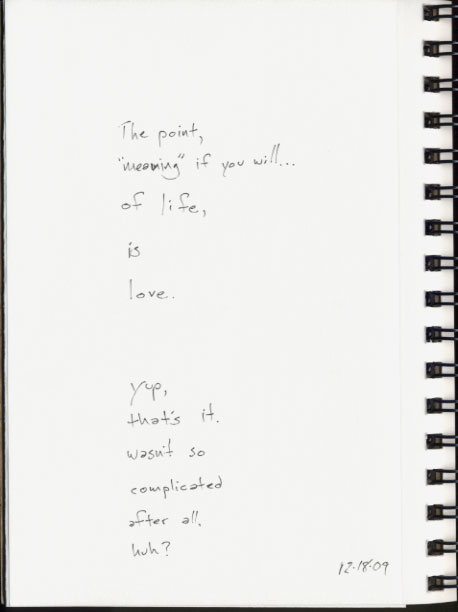 The point,
"meaning" if you will...
of life,
is
love..
yup,
that's it.
wasn't so
complicated
after all.
huh?
12-18-09